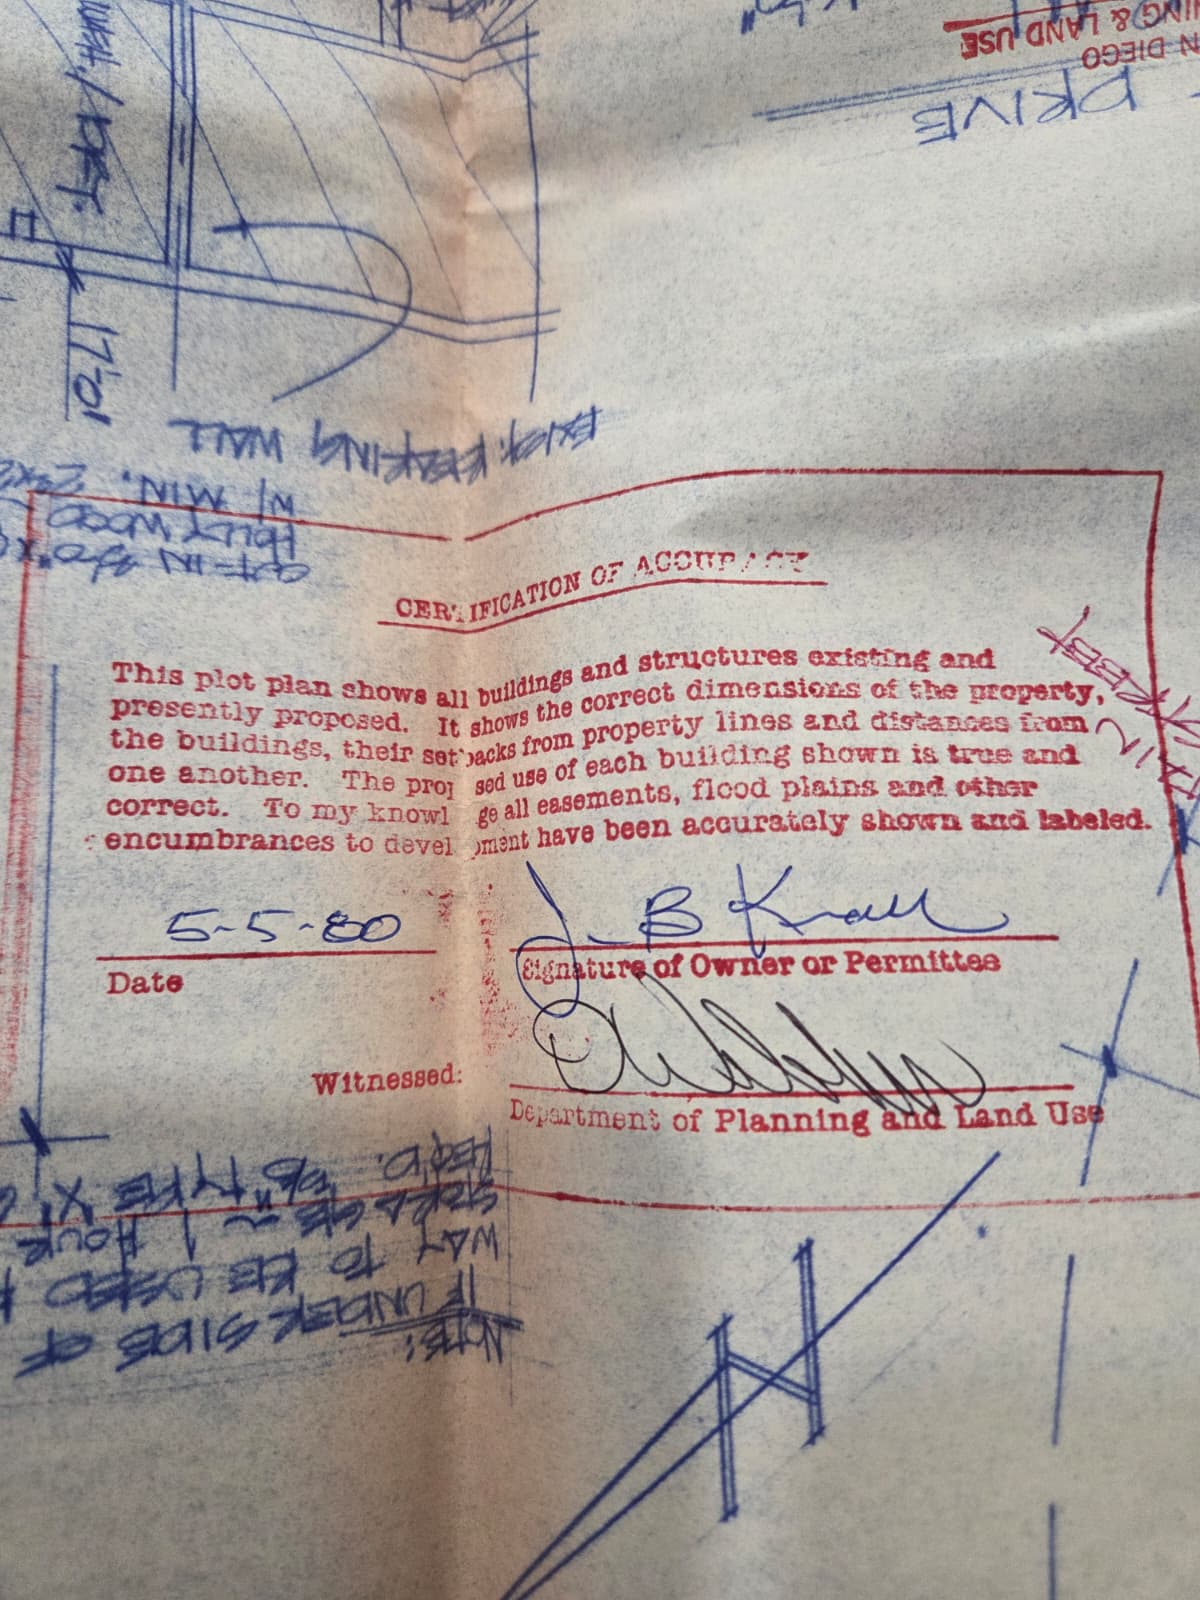 N DIEGO
ING & LAND USE
DRIVE
17'-0"
EXIST. BEARING WALL
W/ MIN.
CERTIFICATION OF ACCURACY
This plot plan shows all buildings and structures existing and
presently proposed. It shows the correct dimensions of the property,
the buildings, their setbacks from property lines and distances from
one another. The proposed use of each building shown is true and
correct. To my knowledge all easements, flood plains and other
encumbrances to development have been accurately shown and labeled.
5-5-80
Date
J B Krall
Signature of Owner or Permittee
Witnessed:
Department of Planning and Land Use
NOTE:
IF UNDER SIDE OF
WAY TO BE USED
STORAGE ~ 1 HOUR
5/8" TYPE X
REQ'D.
N